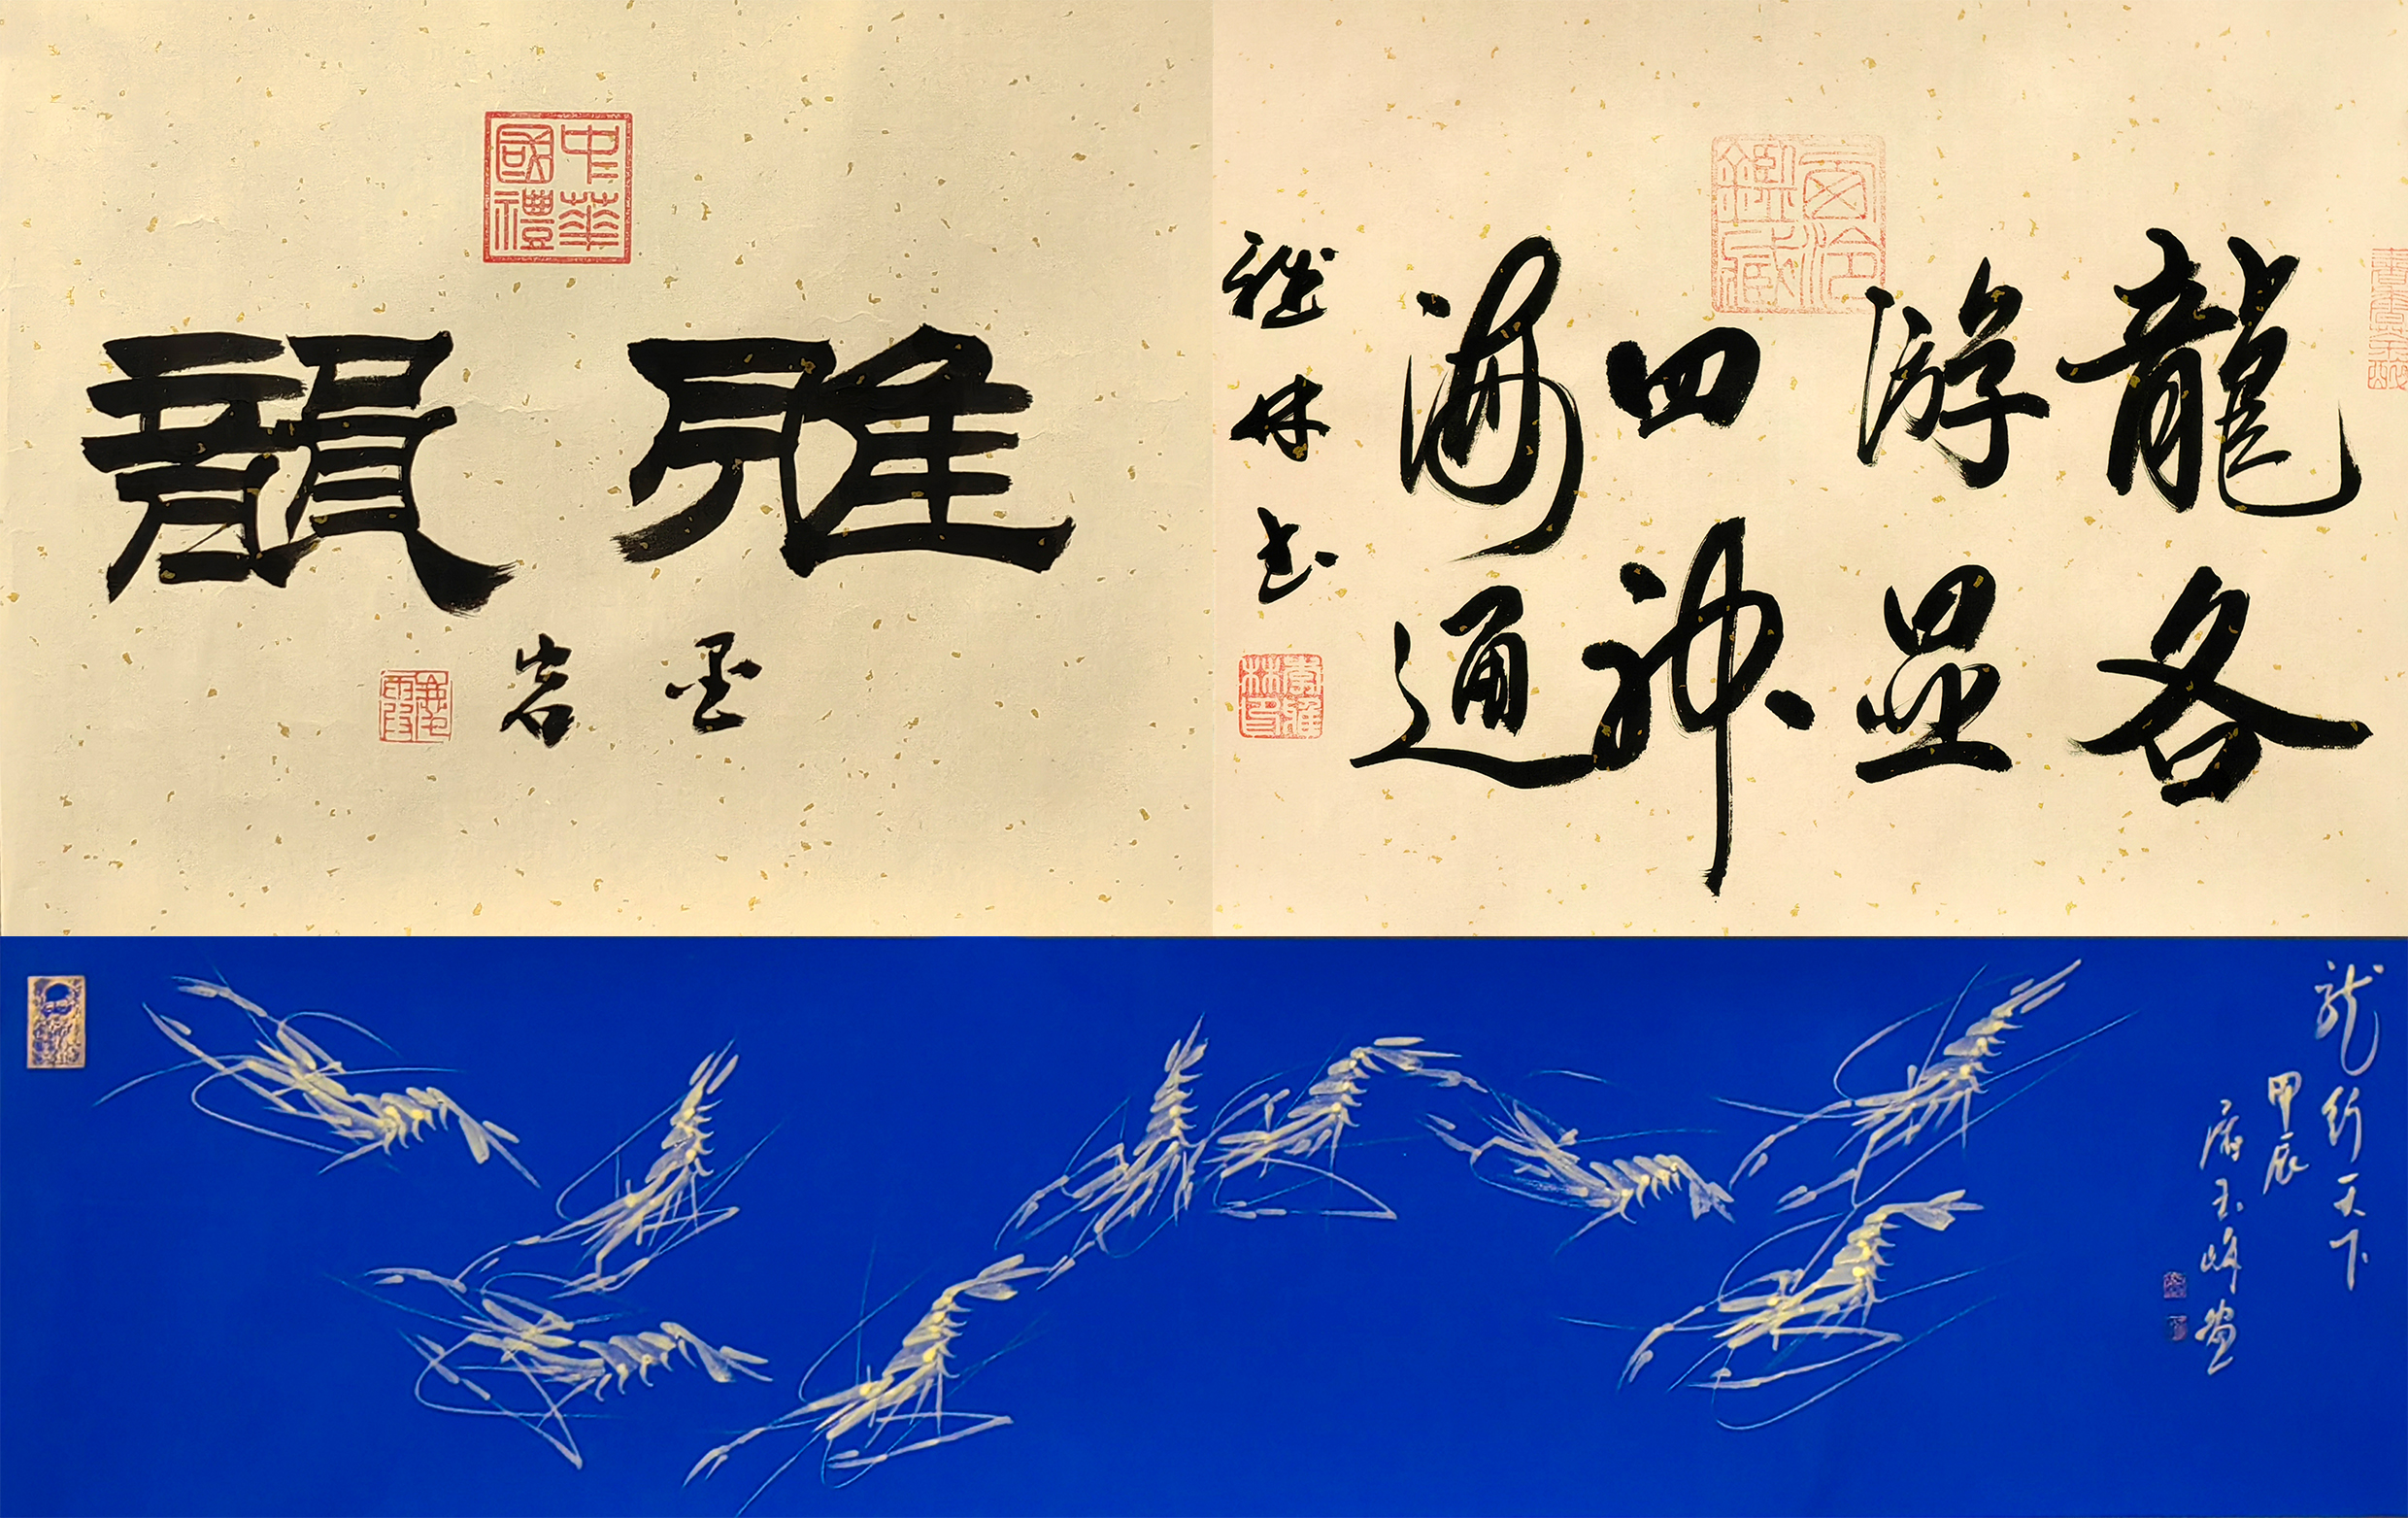 中華國禮
雅韻
墨岩
龍游四海
各显神通
雅林书
龙行天下
甲辰
唐玉峰画